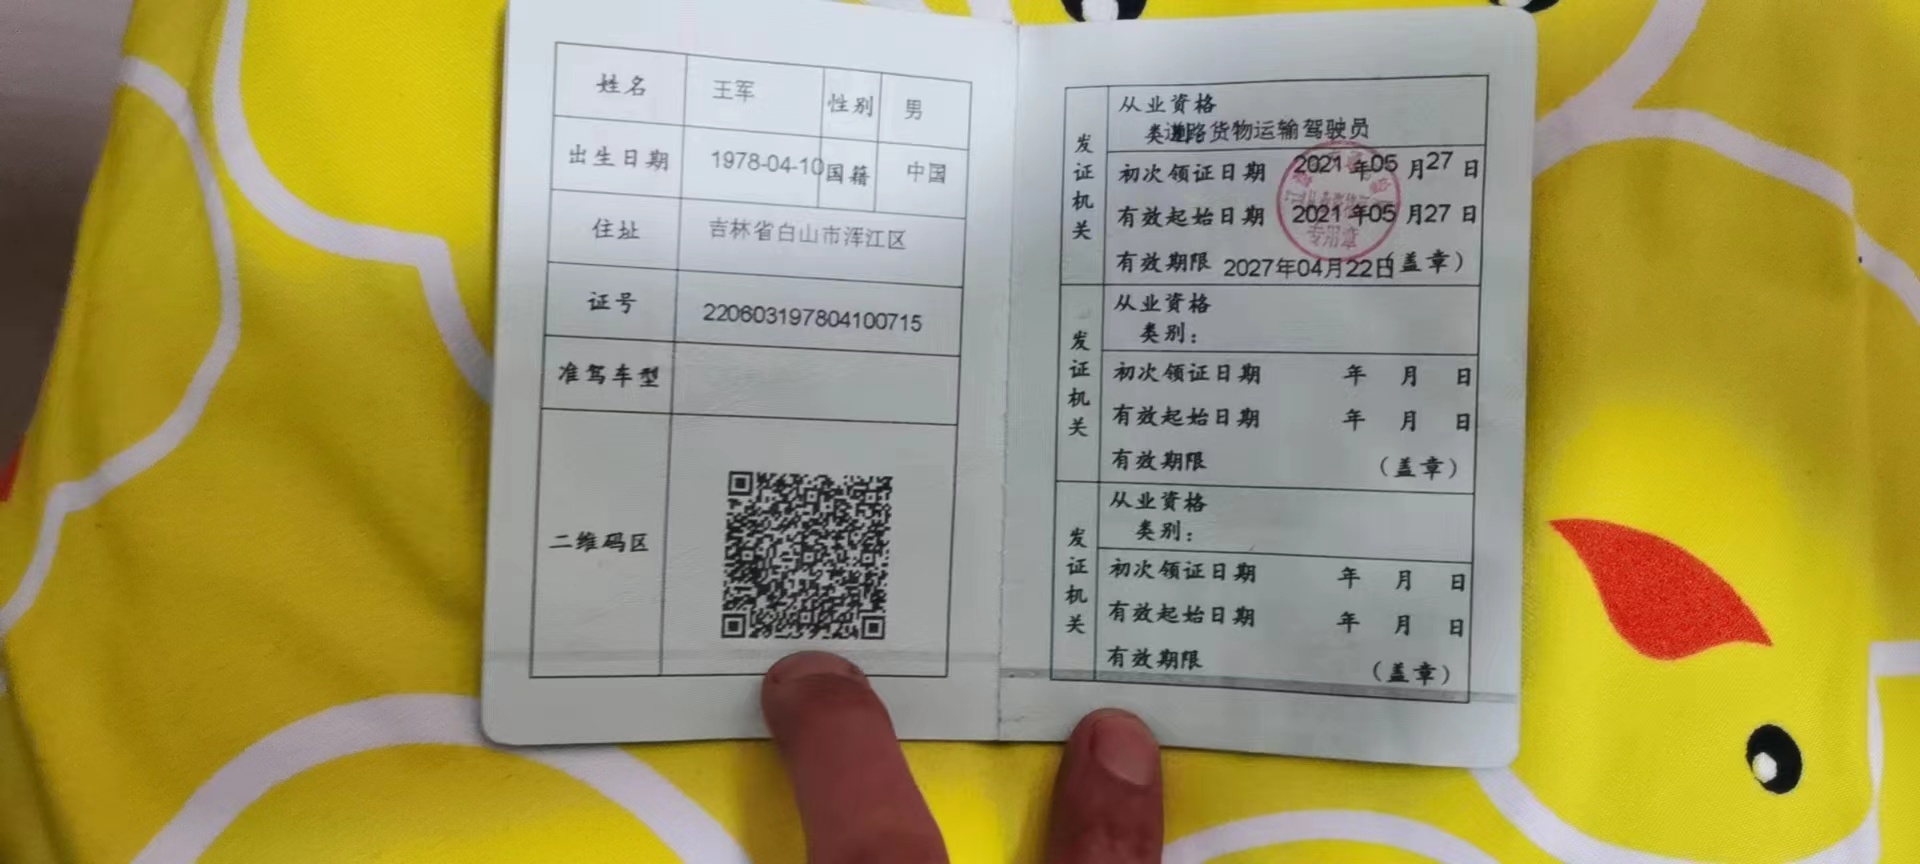 姓名 王军 性别 男
出生日期 1978-04-10 国籍 中国
住址 吉林省白山市浑江区
证号 220603197804100715
准驾车型
二维码区
发证机关
从业资格
类道路货物运输驾驶员
初次领证日期 2021年05月27日
有效起始日期 2021年05月27日
有效期限 2027年04月22日(盖章)
专用章
发证机关
从业资格
类别:
初次领证日期 年 月 日
有效起始日期 年 月 日
有效期限 (盖章)
发证机关
从业资格
类别:
初次领证日期 年 月 日
有效起始日期 年 月 日
有效期限 (盖章)